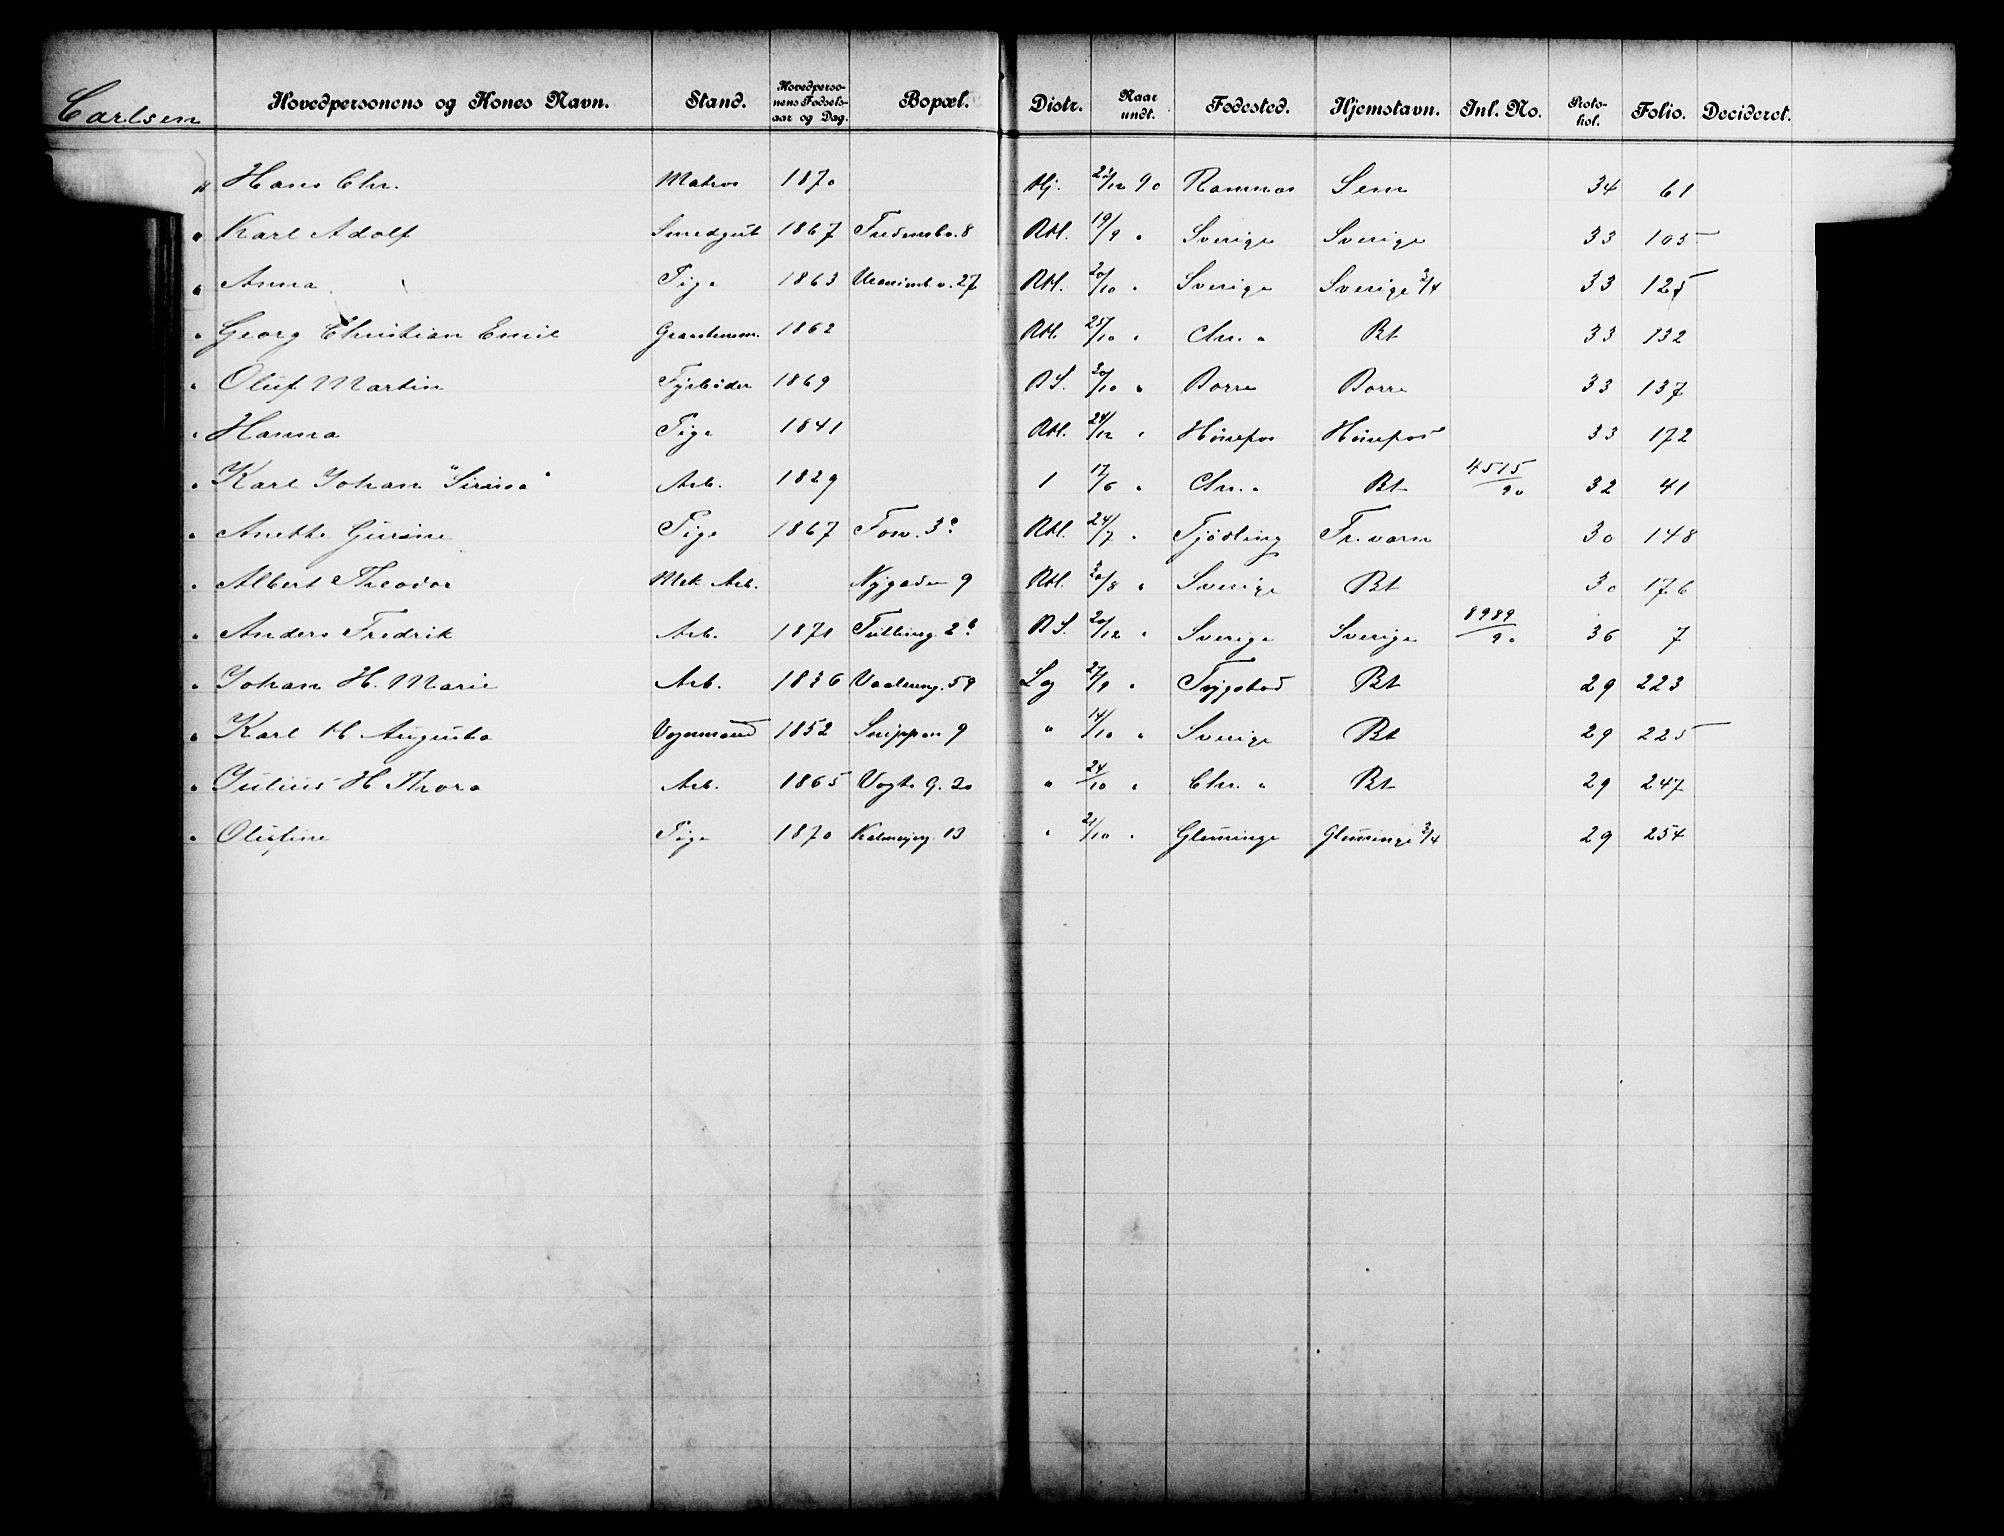 Carlsen Hovedpersonens og Kones Navn. Stand. Hovedpersonens Fødselsaar og Dag. Bopæl. Distr. Naar undt. Fødested. Hjemstavn. Inl. No. Protokol. Folio. Decideret.
" Hans Chr. Matros 1870 Hj. 90 Ramnæs Sem 34 61
" Karl Adolf Smedgut 1867 8 Rbl. 19/9 " Sverige Sverige 33 105
" Anna Pige 1863 Uranienb.v. 27 Rbl. 20/10 " Sverige Sverige 3/4 33 125
" Georg Christian Emil 1862 Rbl. 25/10 " Chr.a Bt 33 132
" Oluf Martin Fyrbøder 1869 B S. 20/10 " Borre Borre 33 137
" Hanna Pige 1841 Rbl. 24/12 " Hønefos Hønefos 33 172
" Karl Johan "Sirina" Arb. 1829 1 17/6 " Chr.a Bt 4515/90 32 41
" Anette Gurine Pige 1867 Rbl. 24/7 " Tjødling Fr.værn 30 148
" Albert Theodor Mek Arb. Nygaden 9 Rbl. 20/8 " Sverige Bt 30 176
" Anders Fredrik Arb. 1871 B S. 20/12 " Sverige Sverige 8989/90 36 7
" Johan H. Marie Arb. 1836 Vaalereng. 59 Lg 27/9 " Trygstad Bt 29 223
" Karl H Augusta Vognmand 1852 Snippen 9 " 14/10 " Sverige Bt 29 225
" Julius H Thora Arb. 1865 Vogts g. 20 " 24/10 " Chr. a Bt 29 247
" Olufine Pige 1870 13 " 21/10 " Glemminge Glemminge 3/4 29 254